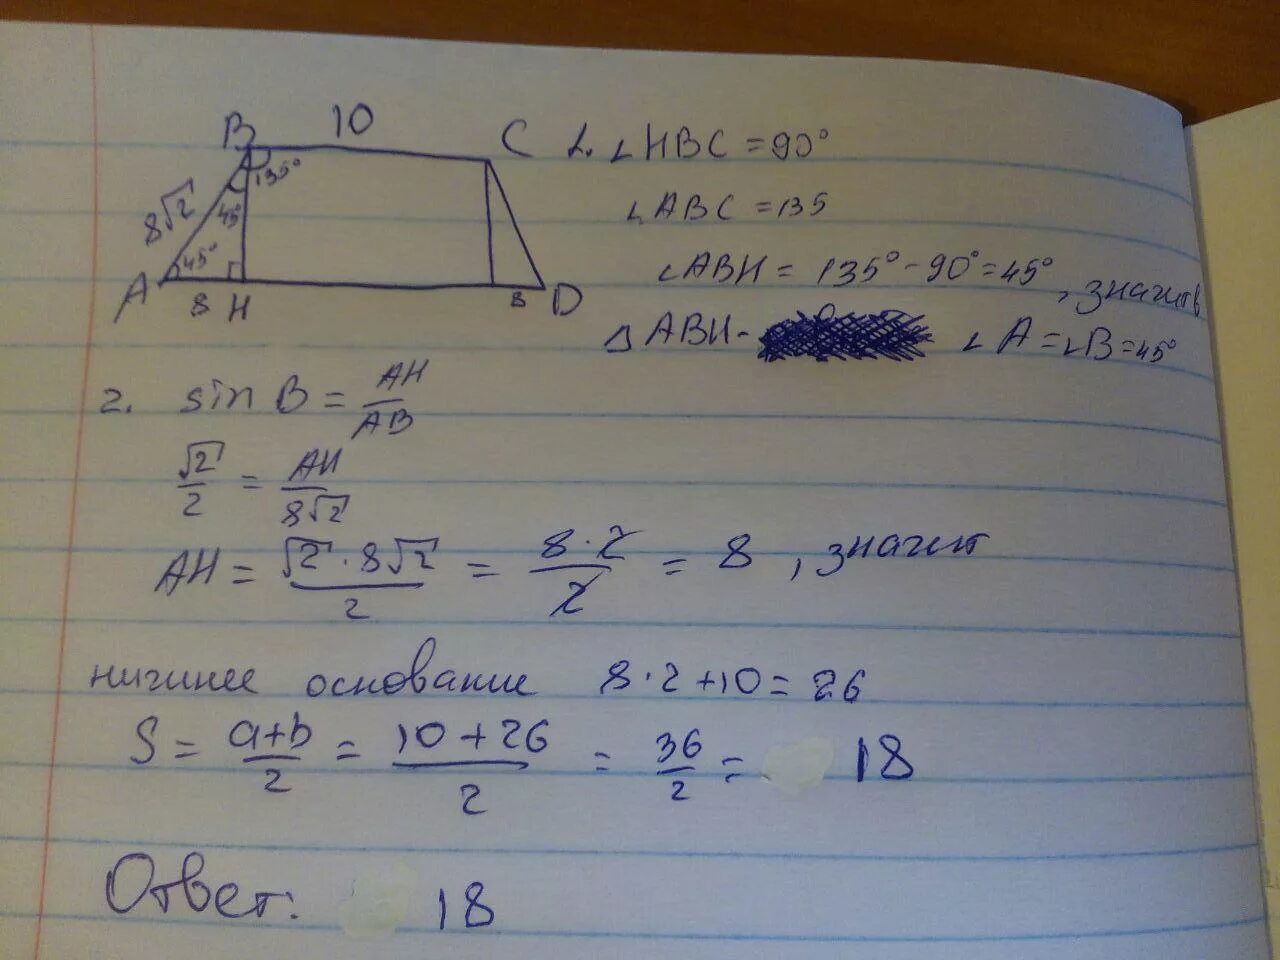 B 10 C
135°
8√2 45°
45°
A 8 H 8 D
1. ∠HBC = 90°
∠ABC = 135
∠ABH = 135° - 90° = 45°, значит в
△ABH - ∠A = ∠B = 45°
2. sin B = AH/AB
√2/2 = AH/8√2
AH = √2 · 8√2/2 = 8 · 2/2 = 8, значит
нижнее основание 8 · 2 + 10 = 26
S = a+b/2 = 10 + 26/2 = 36/2 = 18
Ответ: 18